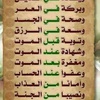 وبركة في العمر
وصحة في الجسد
وسعة في الرزق
وتوبة قبل الموت
وشهادة عند الموت
ومغفرة بعد الموت
وعفوا عند الحساب
وأمانا من العذاب
ونصيبا من الجنة